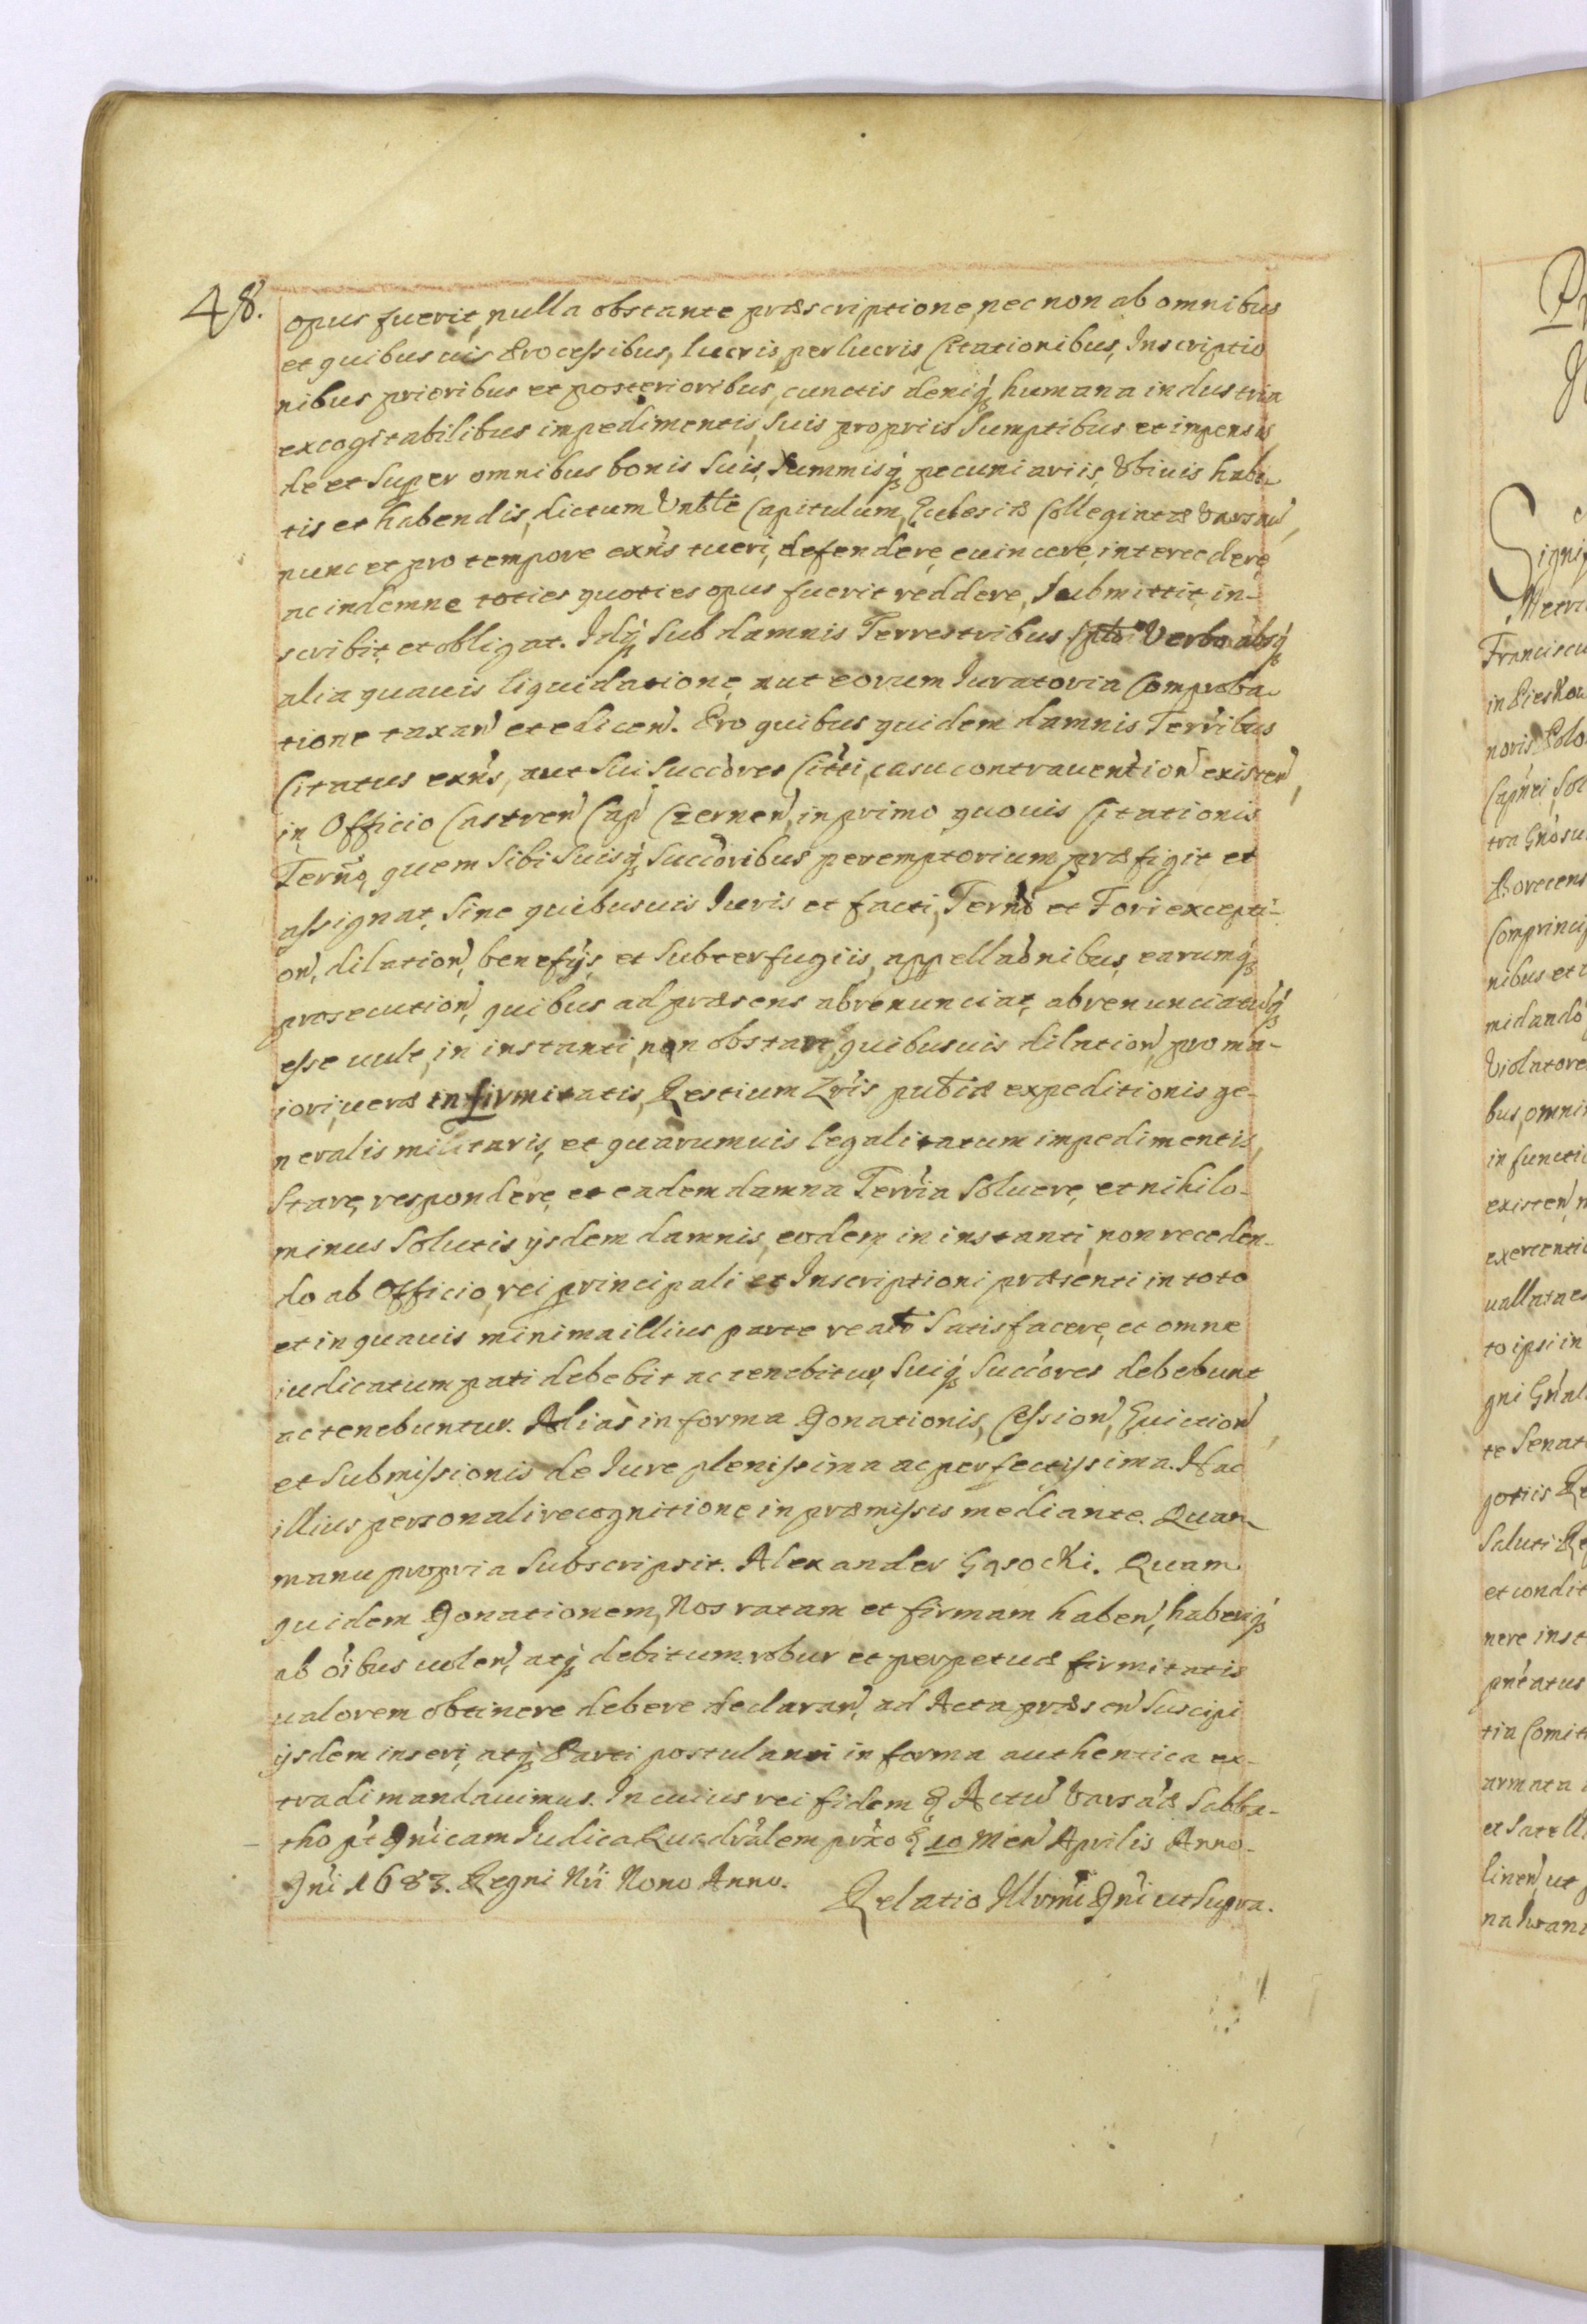 48.
opus fuerit, nulla obstante præscriptione, nec non ab omnibus
et quibusuis Processibus, lucris, perlucris Citationibus, Inscriptio
nibus prioribus et posterioribus, cunctis deniq́ꝫ humana industria
excogitabilibus impedimentis, suis propriis Sumptibus et inpensis
de et super omnibus bonis suis, Summisq́ꝫ pecuniariis, Vbiuis habi-
tis et habendis, dictum Vnble Capitulum, Ecclesiæ Collegiatæ Varsau̇,
nunc et pro tempore exn̄s tueri, defendere, euincere, intercedere,
ac indemne toties quoties opus fuerit reddere, Submittit, in-
scribit, et obligat. Idq́ꝫ sub damnis Terrestribus Verbo absq́ꝫ
alia quauis liquidatione, aut eorum Iuratoria Comproba-
tione taxan̄ et edicen̄. Pro quibus quidem damnis Terrībus
Citatus exn̄s, aut sui Succōres Citti, casu contrauention̄ existen̄,
in Officio Castren̄ Cap̄ Czernen̄, in primo quouis Citationis
Terño, quem sibi suisq́ꝫ succōribus peremptorium præfigit et
assignat, sine quibusuis Iuris et facti, Terño et Fori excepti-
on̄, dilation̄, benefijs, et subterfugiis, appellaōnibus, earumq́ꝫ
prosecution̄, quibus ad præsens abrenunciat, abrenunciatuq́ꝫ
esse uult, in instanti, non obstan̄, quibusuis dilation̄, pro ma-
iori, ueræ infirmitatis, Restium Lr̄is publicæ expeditionis ge-
neralis militaris, et quarumuis legalitatum impedimentis,
stare, respondere, et eadem damna Terrīa soluere, et nihilo-
minus solutis ijsdem damnis, eodem in instanti, non receden-
do ab Officio, rei principali et Inscriptioni præsenti in toto
et in quauis minima illius parte realr̄ satisfacere, et omne
iudicatum pati debebit ac tenebitur, suiq́ꝫ Succōres debebunt
ac tenebuntur. Alias in forma Donationis, Cession̄, Euiction̄,
et submissionis de Iure plenissima ac perfectissima. Hac
illius personali recognitione in præmissis mediante. Quam
manu propria subscripsit. Alexander Gąsocki. Quam
quidem Donationem, Nos ratam et firmam haben̄, haberiq́ꝫ
ab oībus uolen̄, atq́ꝫ debitum robur et perpetuæ firmitatis
ualorem obtinere debere declaran̄, ad Acta præsen̄ suscipi
ijsdem inseri, atq́ꝫ Parti postulanti in forma authentica ex-
tradi mandauimus. In cuius rei fidem & Actū Varsaæ Sabba-
tho pt̄ Dnicam Iudica Quadrālem prxo & 10 Men̄ Aprilis Anno
Dni 1683. Regni Nri Nono Anno.
Relatio Illrmi Dni ut supra.